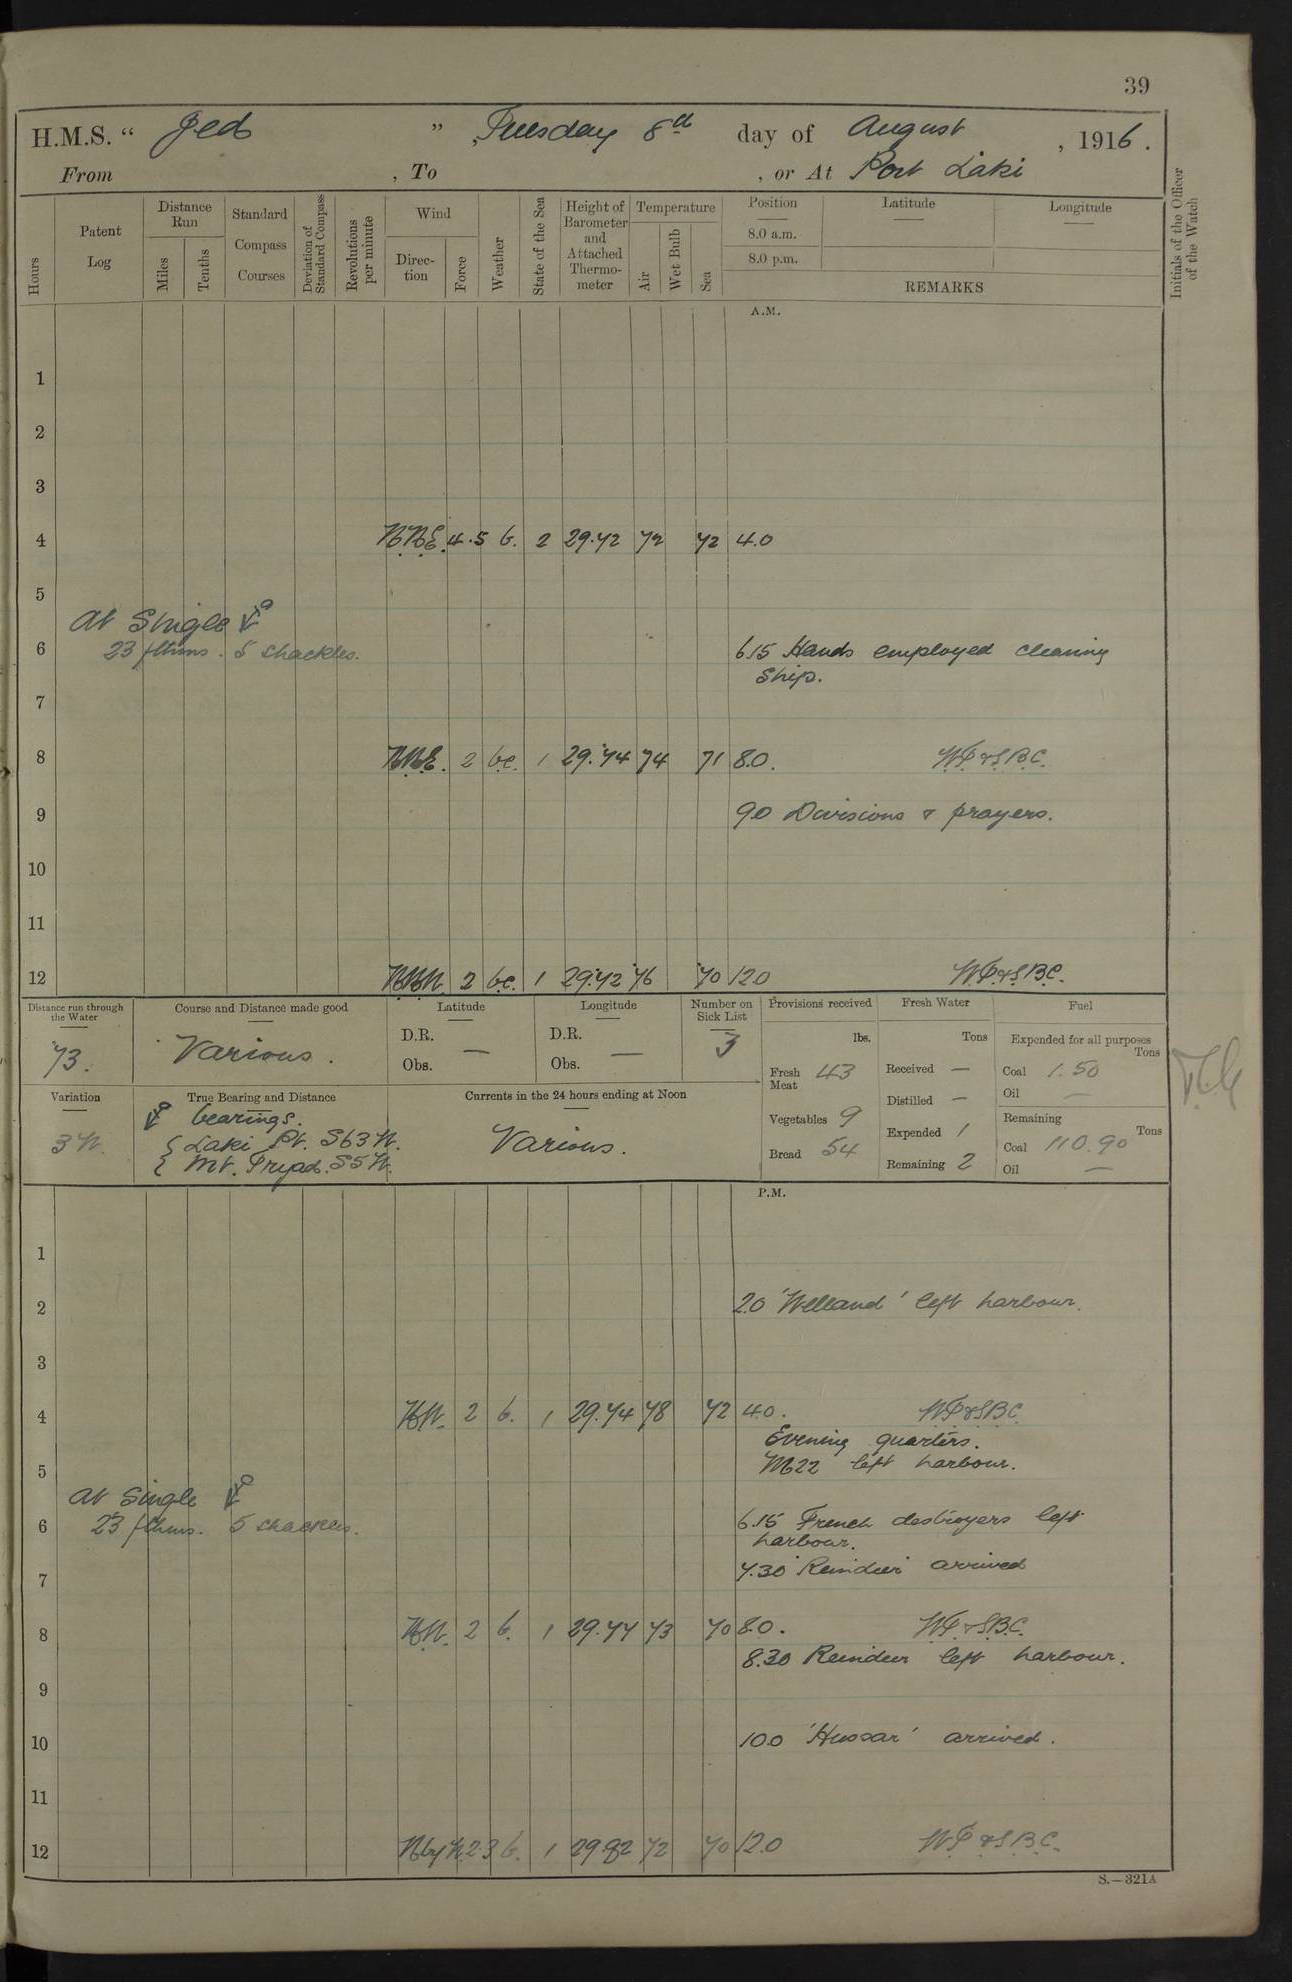 39
H.M.S. " Jed " , Tuesday 8th day of August , 1916.
From , To , or At Port Laki
Hours
Patent Log
Distance Run
Miles
Tenths
Standard Compass Courses
Deviation of Standard Compass
Revolutions per minute
Wind
Direction
Force
Weather
State of the Sea
Height of Barometer and Attached Thermometer
Temperature
Air
Wet Bulb
Sea
Position
Latitude
Longitude
8.0 a.m.
8.0 p.m.
REMARKS
Initials of the Officer of the Watch
A.M.
1
2
3
4 N.N.E. 4.5 b. 2 29.72 72 72 4.0
5
At Single
6 23 fthms. 5 shackles. 615 Hands employed cleaning
Ship.
7
8 N.N.E. 2 b.c. 1 29.74 74 71 8.0.
9 9.0 Divisions & prayers.
10
11
12 N.N.W. 2 b.c. 1 29.72 76 70 12.0
Distance run through the Water
73.
Course and Distance made good
Various.
Latitude
D.R.
Obs. —
Longitude
D.R.
Obs. —
Number on Sick List
3
Provisions received
lbs.
Fresh Meat 43
Vegetables 9
Bread 54
Fresh Water
Tons
Received —
Distilled —
Expended 1
Remaining 2
Fuel
Expended for all purposes
Tons
Coal 1.50
Oil —
Remaining
Tons
Coal 110.90
Oil —
Variation
3 W.
True Bearing and Distance
bearings.
Laki Pt. S63W.
Mt. S5W.
Currents in the 24 hours ending at Noon
Various.
P.M.
1
2 2.0 'Welland' left harbour.
3
4 N.W. 2 b. 1 29.74 78 72 4.0.
Evening quarters.
M22 left harbour.
5
At Single
6 23 fthms. 5 shackles. 6.15 French destroyers left
harbour.
7.30 'Reindeer' arrived
7
8 N.W. 2 b. 1 29.77 73 70 8.0.
8.30 Reindeer left harbour.
9
10 10.0 'Hussar' arrived.
11
12 N by W. 2.3 b. 1 29.82 72 70 12.0
S.—321A